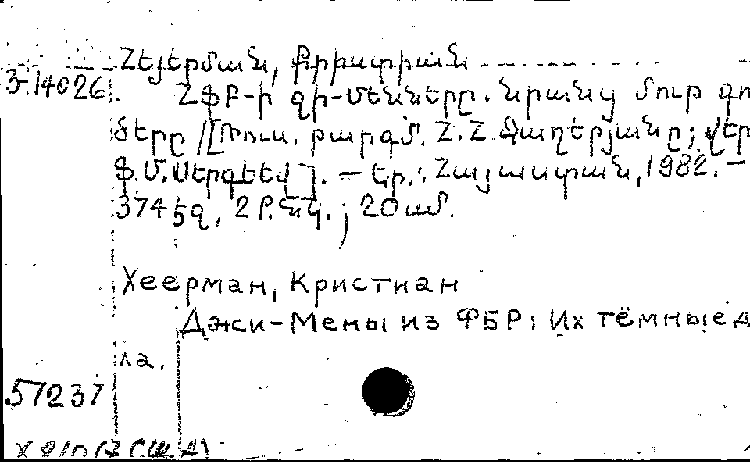 Հեյերման, Քրիստիան
3-14026. ՀՖԲ-ի ջի-մենները. նրանց մութ գո
ծերը /[Ռուս. թարգմ. Հ. Հ. Ջաղերյանը; վեր
Ֆ. Մ. Սերգեև]. — Եր.: Հայաստան, 1982. —
374 էջ, 2 թ. նկ.; 20 սմ.
Хеерман, Кристиан
Джи-Мены из ФБР: Их тёмные д
ла.
57237